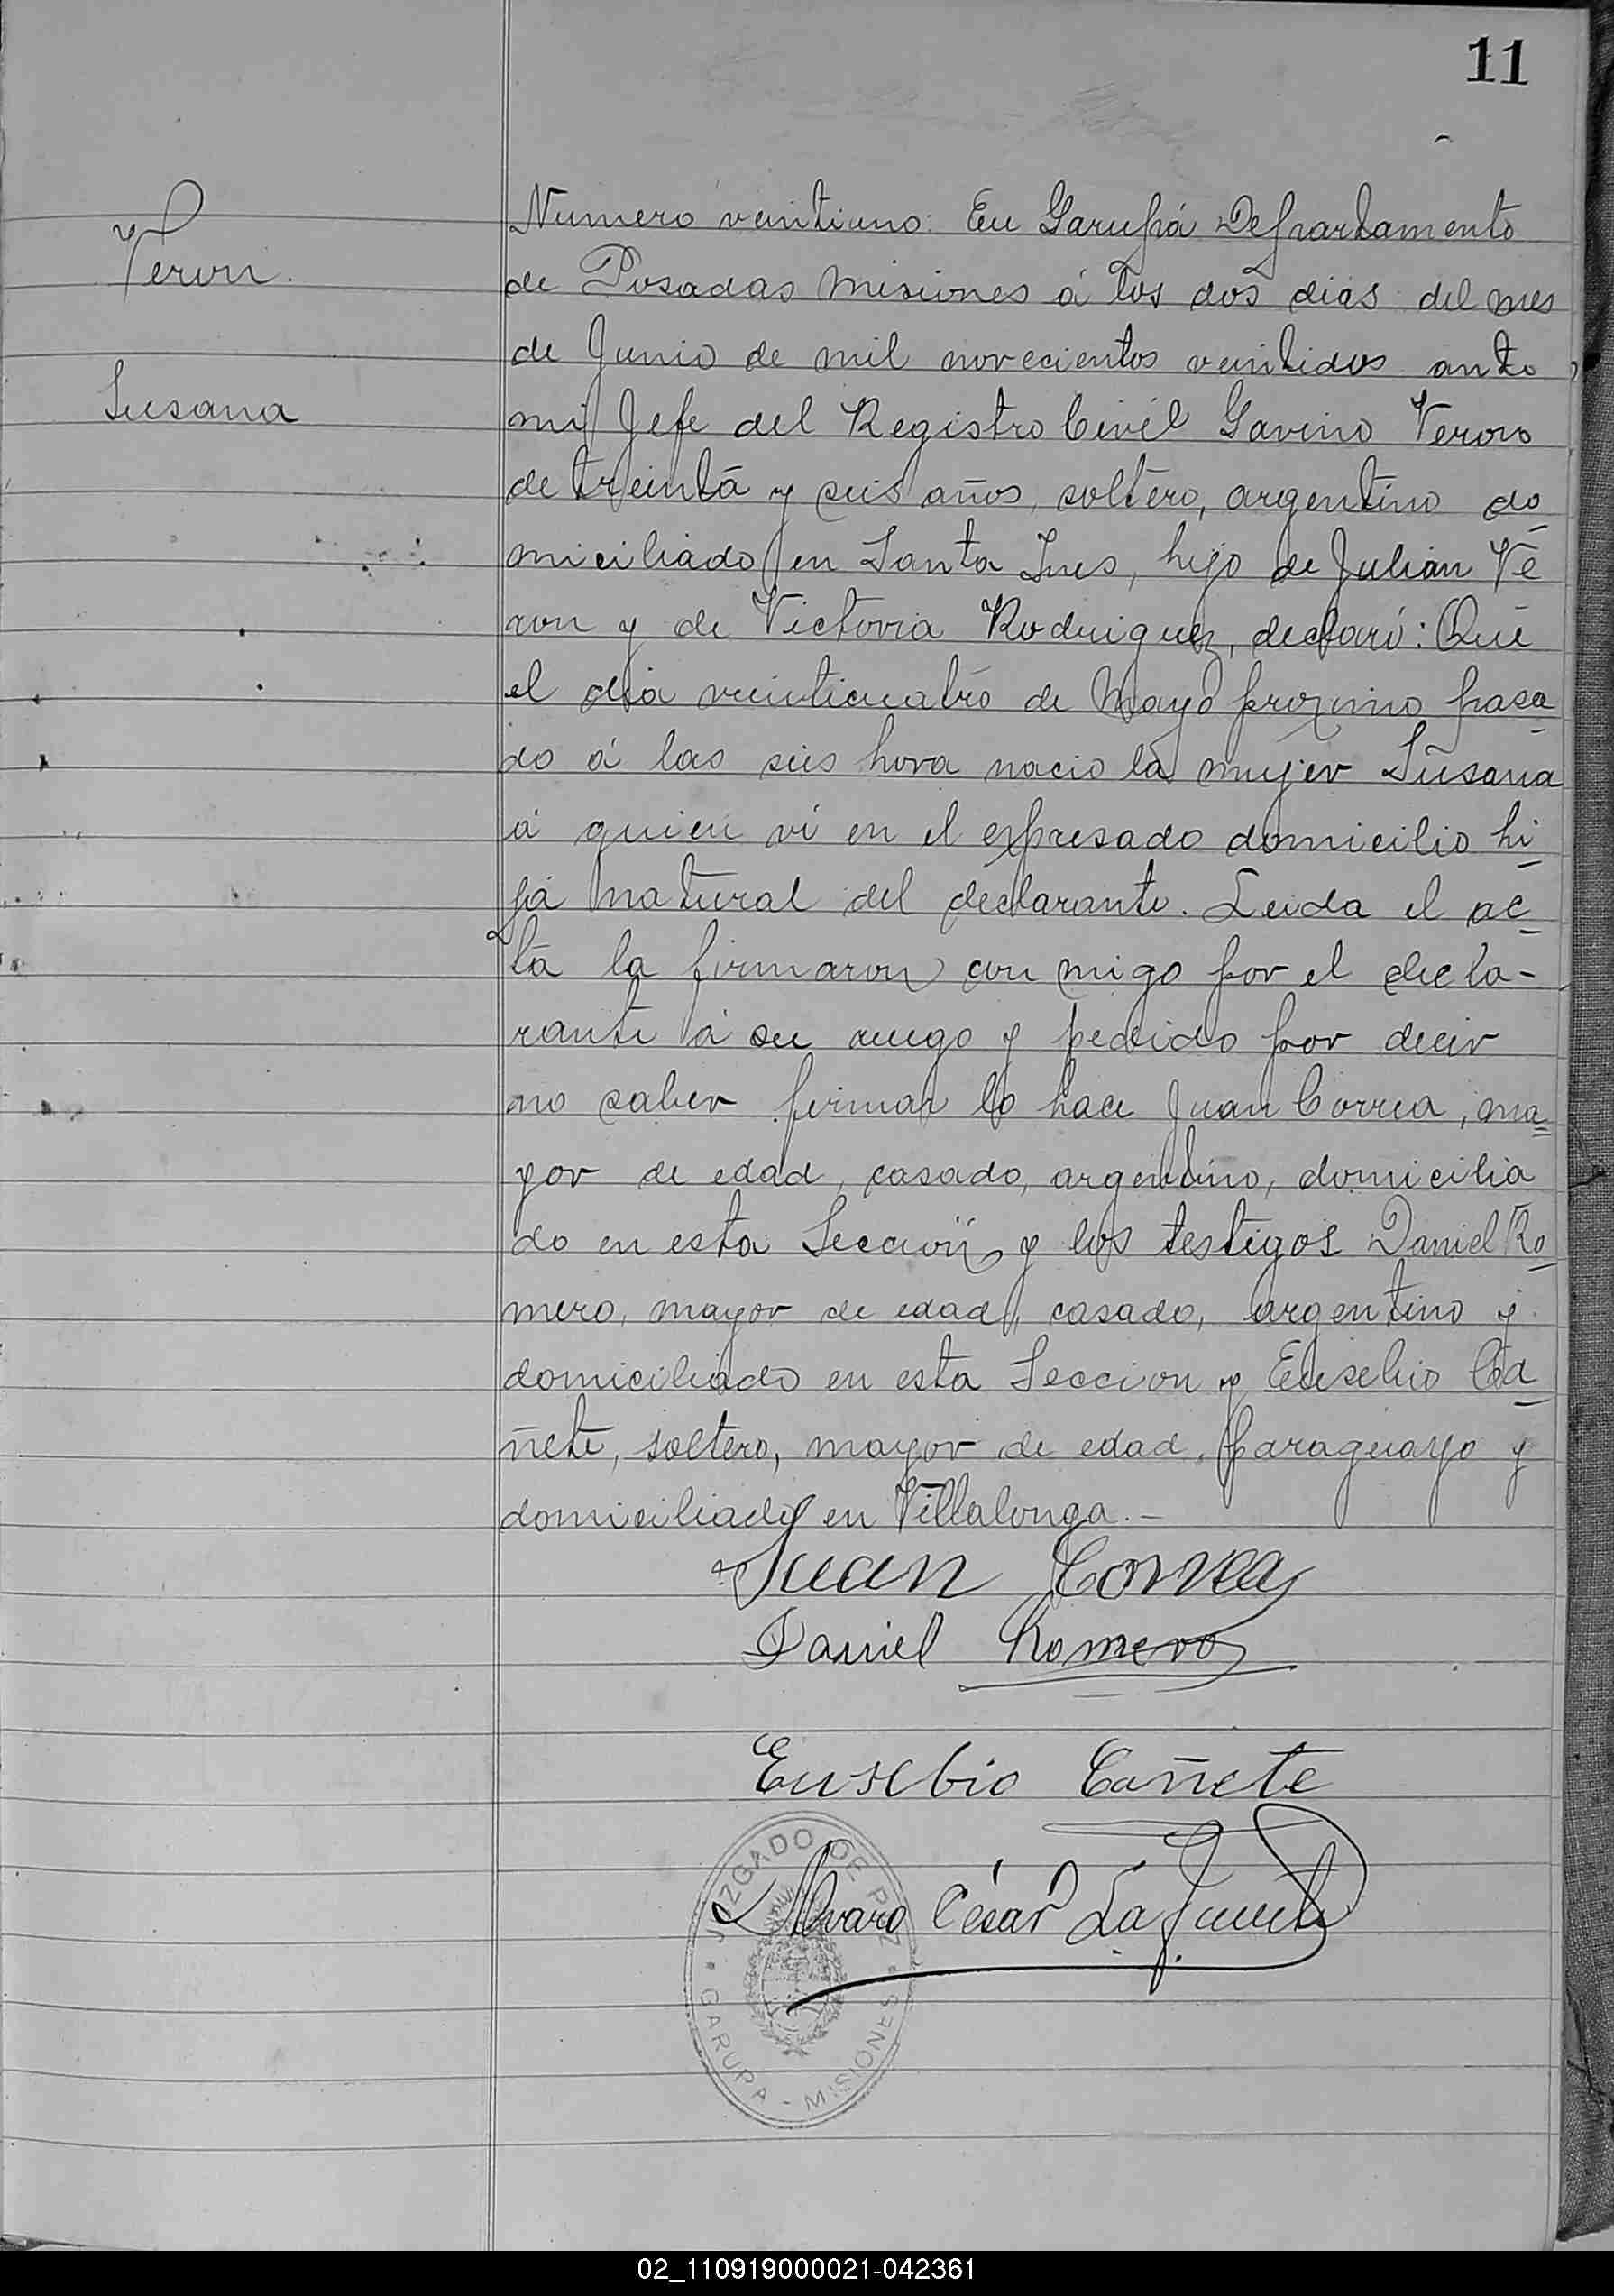 11
Veron.
Susana
Numero veintiuno: En Garupá Departamento
de Posadas Misiones á los dos dias del mes
de Junio de mil novecientos veintidos ante
mi Jefe del Registro Civil Gavino Veron
de treinta y seis años, soltero, argentino do
miciliado en Santa Ines, hijo de Julian Ve
ron y de Victoria Rodriguez, declaró: Que
el dia veinticuatro de Mayo proximo pasa
do á las seis hora nacio la mujer Susana
á quien vi en el expresado domicilio hi
ja natural del declarante. Leida el ac
ta la firmaron con migo por el decla-
rante á su ruego y pedido por decir
no saber firmar lo hace Juan Correa, ma
yor de edad, casado, argentino, domicilia
do en esta Seccion y los testigos Daniel Ro
mero, mayor de edad, casado, argentino y
domiciliado en esta Seccion y Eusebio Ca
ñete, soltero, mayor de edad, paraguayo y
domiciliado en Villalonga.-
Juan Correa
Daniel Romero
Eusebio Cañete
Alvaro César La
JUZGADO DE PAZ
GARUPA - MISIONES
02_110919000021-042361